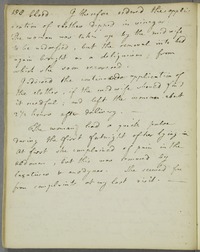 150. Blood I therefore ordered the appli-
cation of cloths dipped in vinegar
The woman was taken up by the midwife
to be undressed, but the removal into bed
again brought on a deliquium, from
which she soon recovered.
I advised the continued application of
the cloths, if the midwife should find
it needful; and left the woman about
2½ hours after delivery. —
The woman had a quick pulse
during the first fortnight of her lying in
At first she complained of pain in the
abdomen, but this was removed by
laxatives & anodynes. She seemed
from complaints at my last visit. —